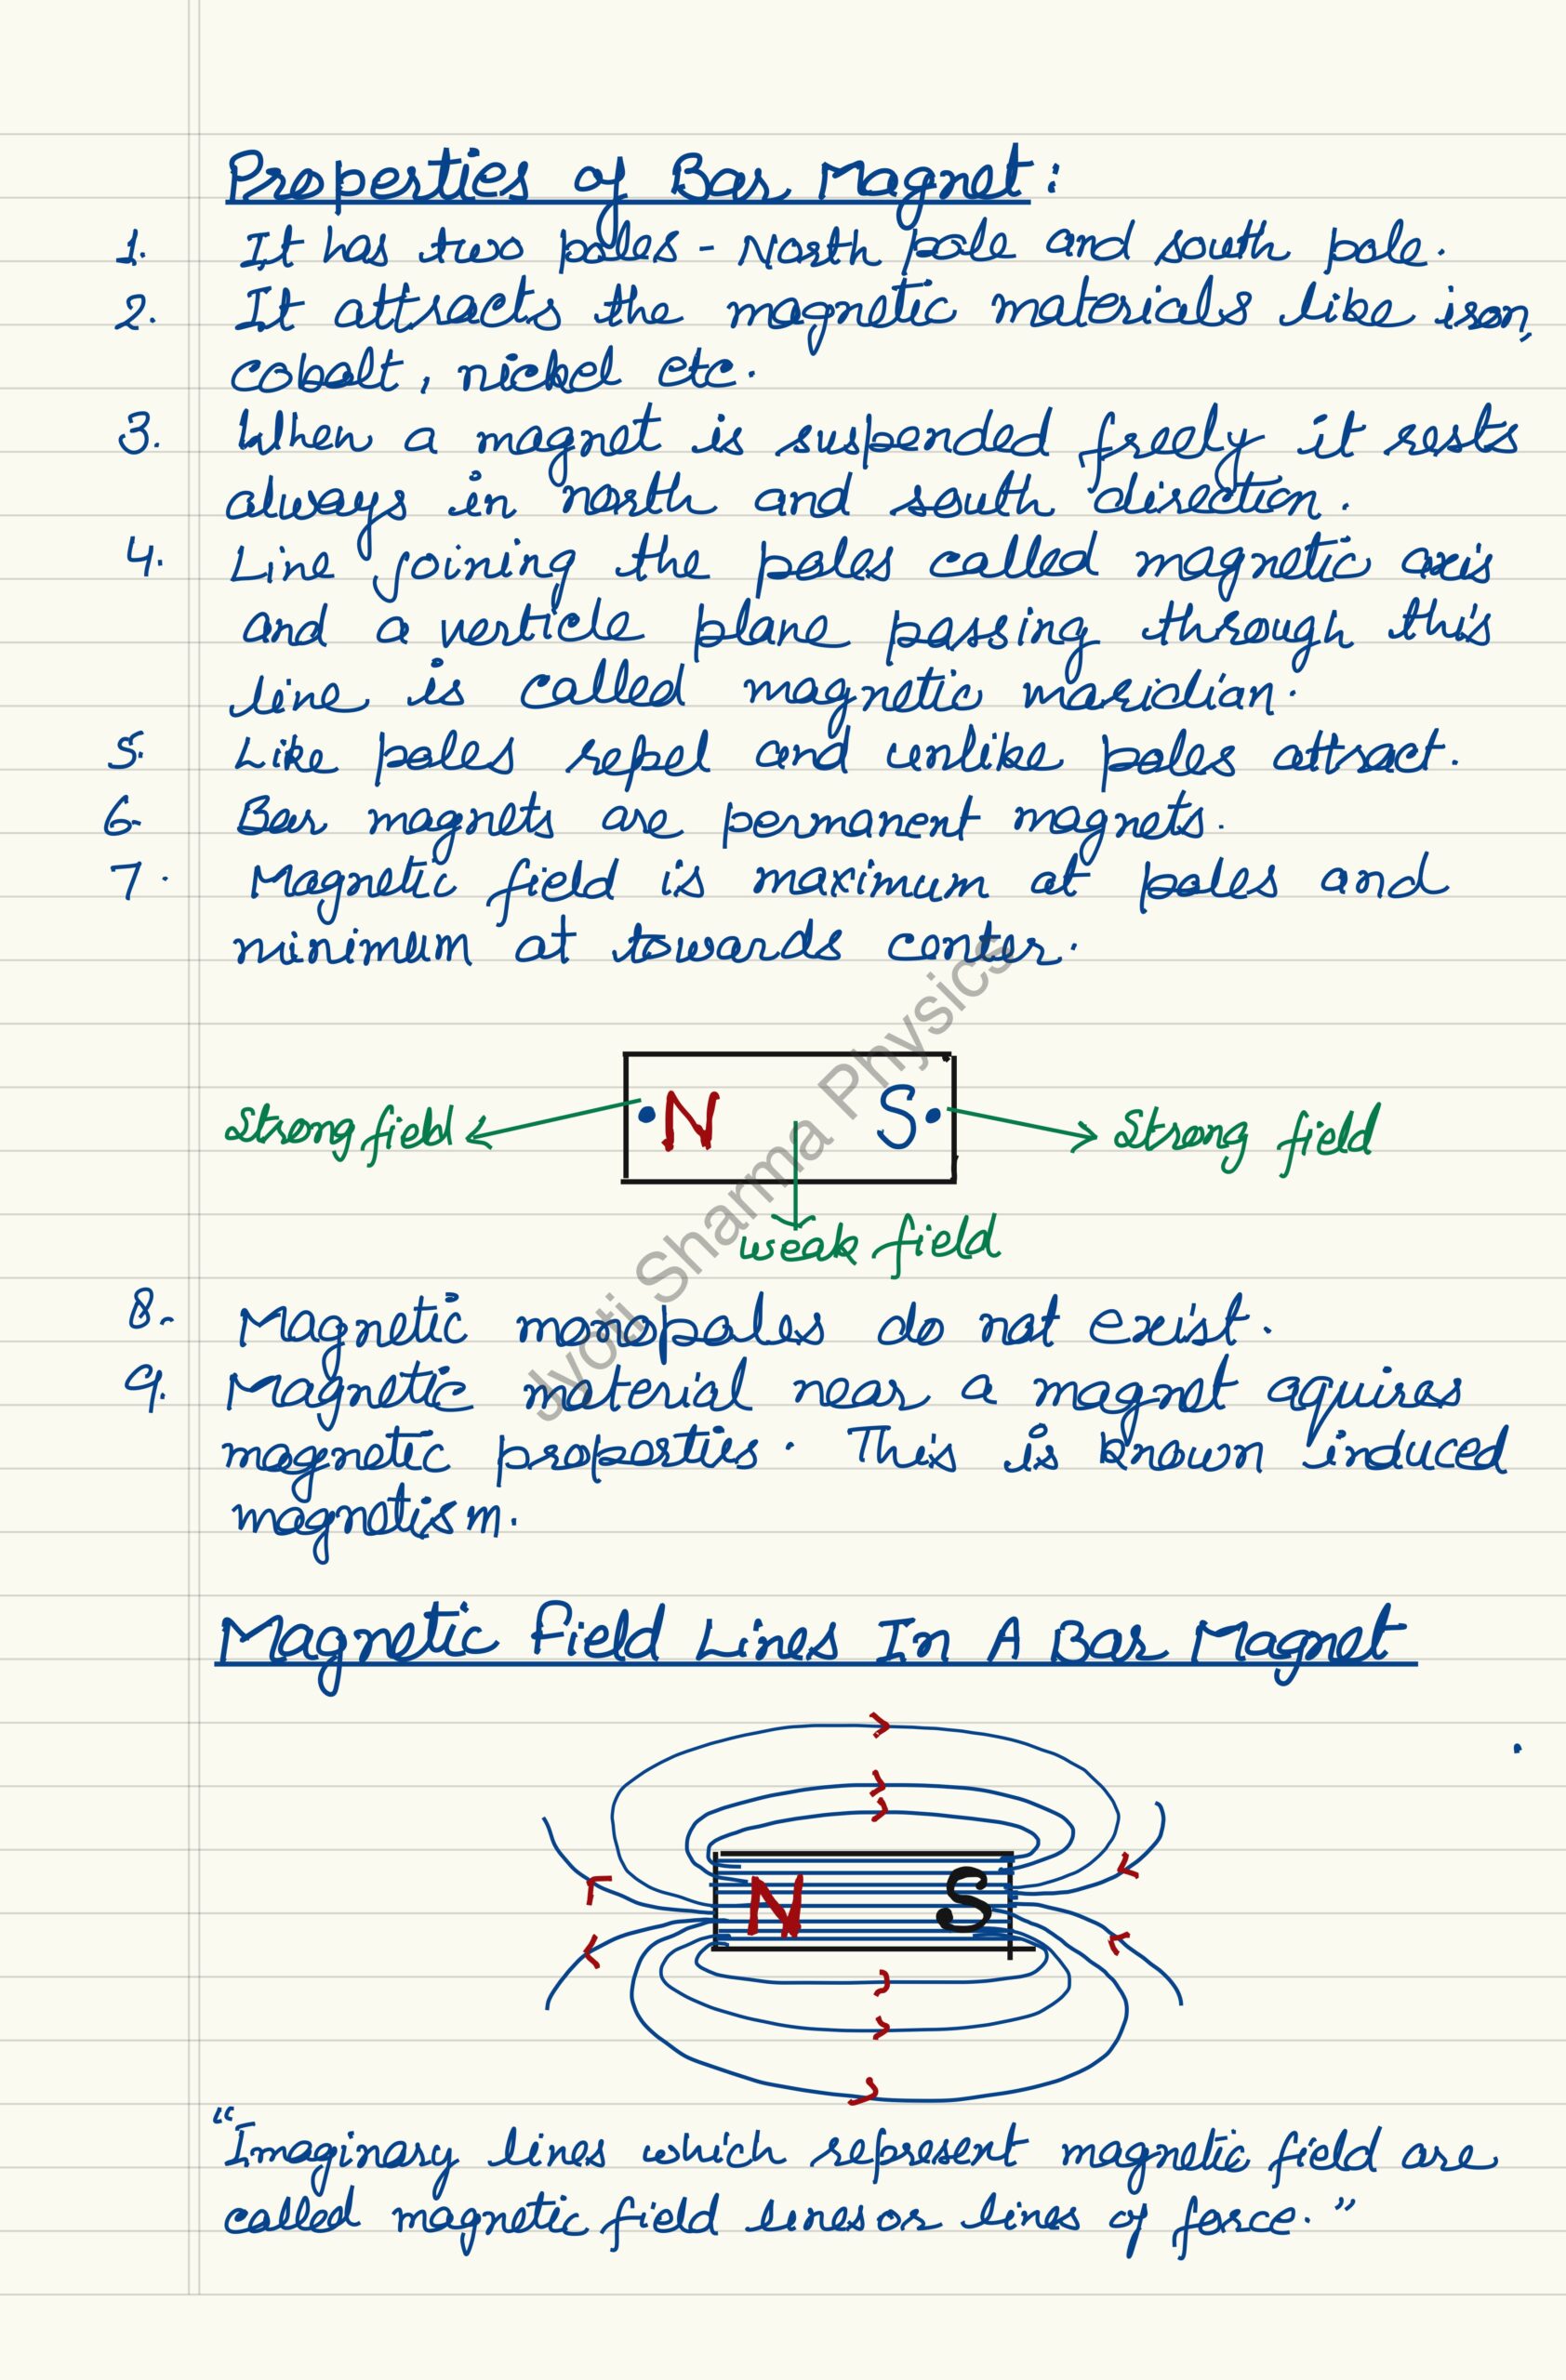 Properties of Bar Magnet:
1. It has two poles - North pole and south pole.
2. It attracts the magnetic materials like iron,
cobalt, nickel etc.
3. When a magnet is suspended freely it rests
always in north and south direction.
4. Line joining the poles called magnetic axis
and a verticle plane passing through this
line is called magnetic maridian.
5. Like poles repel and unlike poles attract.
6. Bar magnets are permanent magnets.
7. Magnetic field is maximum at poles and
minimum at towards center.
Strong field N S Strong field
weak field
Jyoti Sharma Physics
8. Magnetic monopoles do not exist.
9. Magnetic material near a magnet aquires
magnetic properties. This is known induced
magnetism.
Magnetic Field Lines In A Bar Magnet
N S
"Imaginary lines which represent magnetic field are
called magnetic field lines or lines of force."